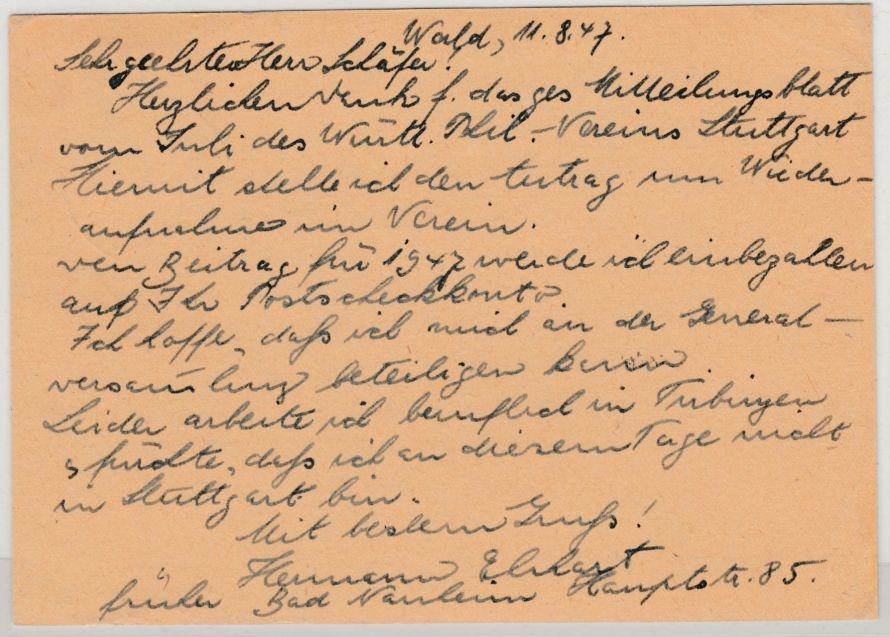 Wald, 11.8.47.
Sehr geehrter Herr Schäfer!
Herzlichen Dank f. das ges Mitteilungsblatt
vom Juli des Württ. Phil.-Vereins Stuttgart
Hiermit stelle ich den Antrag um Wieder-
aufnahme im Verein.
Den Beitrag für 1947 werde ich einbezahlen
auf Ihr Postscheckkonto
Ich hoffe, daß ich mich an der General-
versamlung beteiligen kann
Leider arbeite ich beruflich in Tübingen
fürchte, daß ich an diesem Tage nicht
in Stuttgart bin.
Mit bestem Gruß!
Hermann
früher Bad Nauheim Hauptstr. 85.